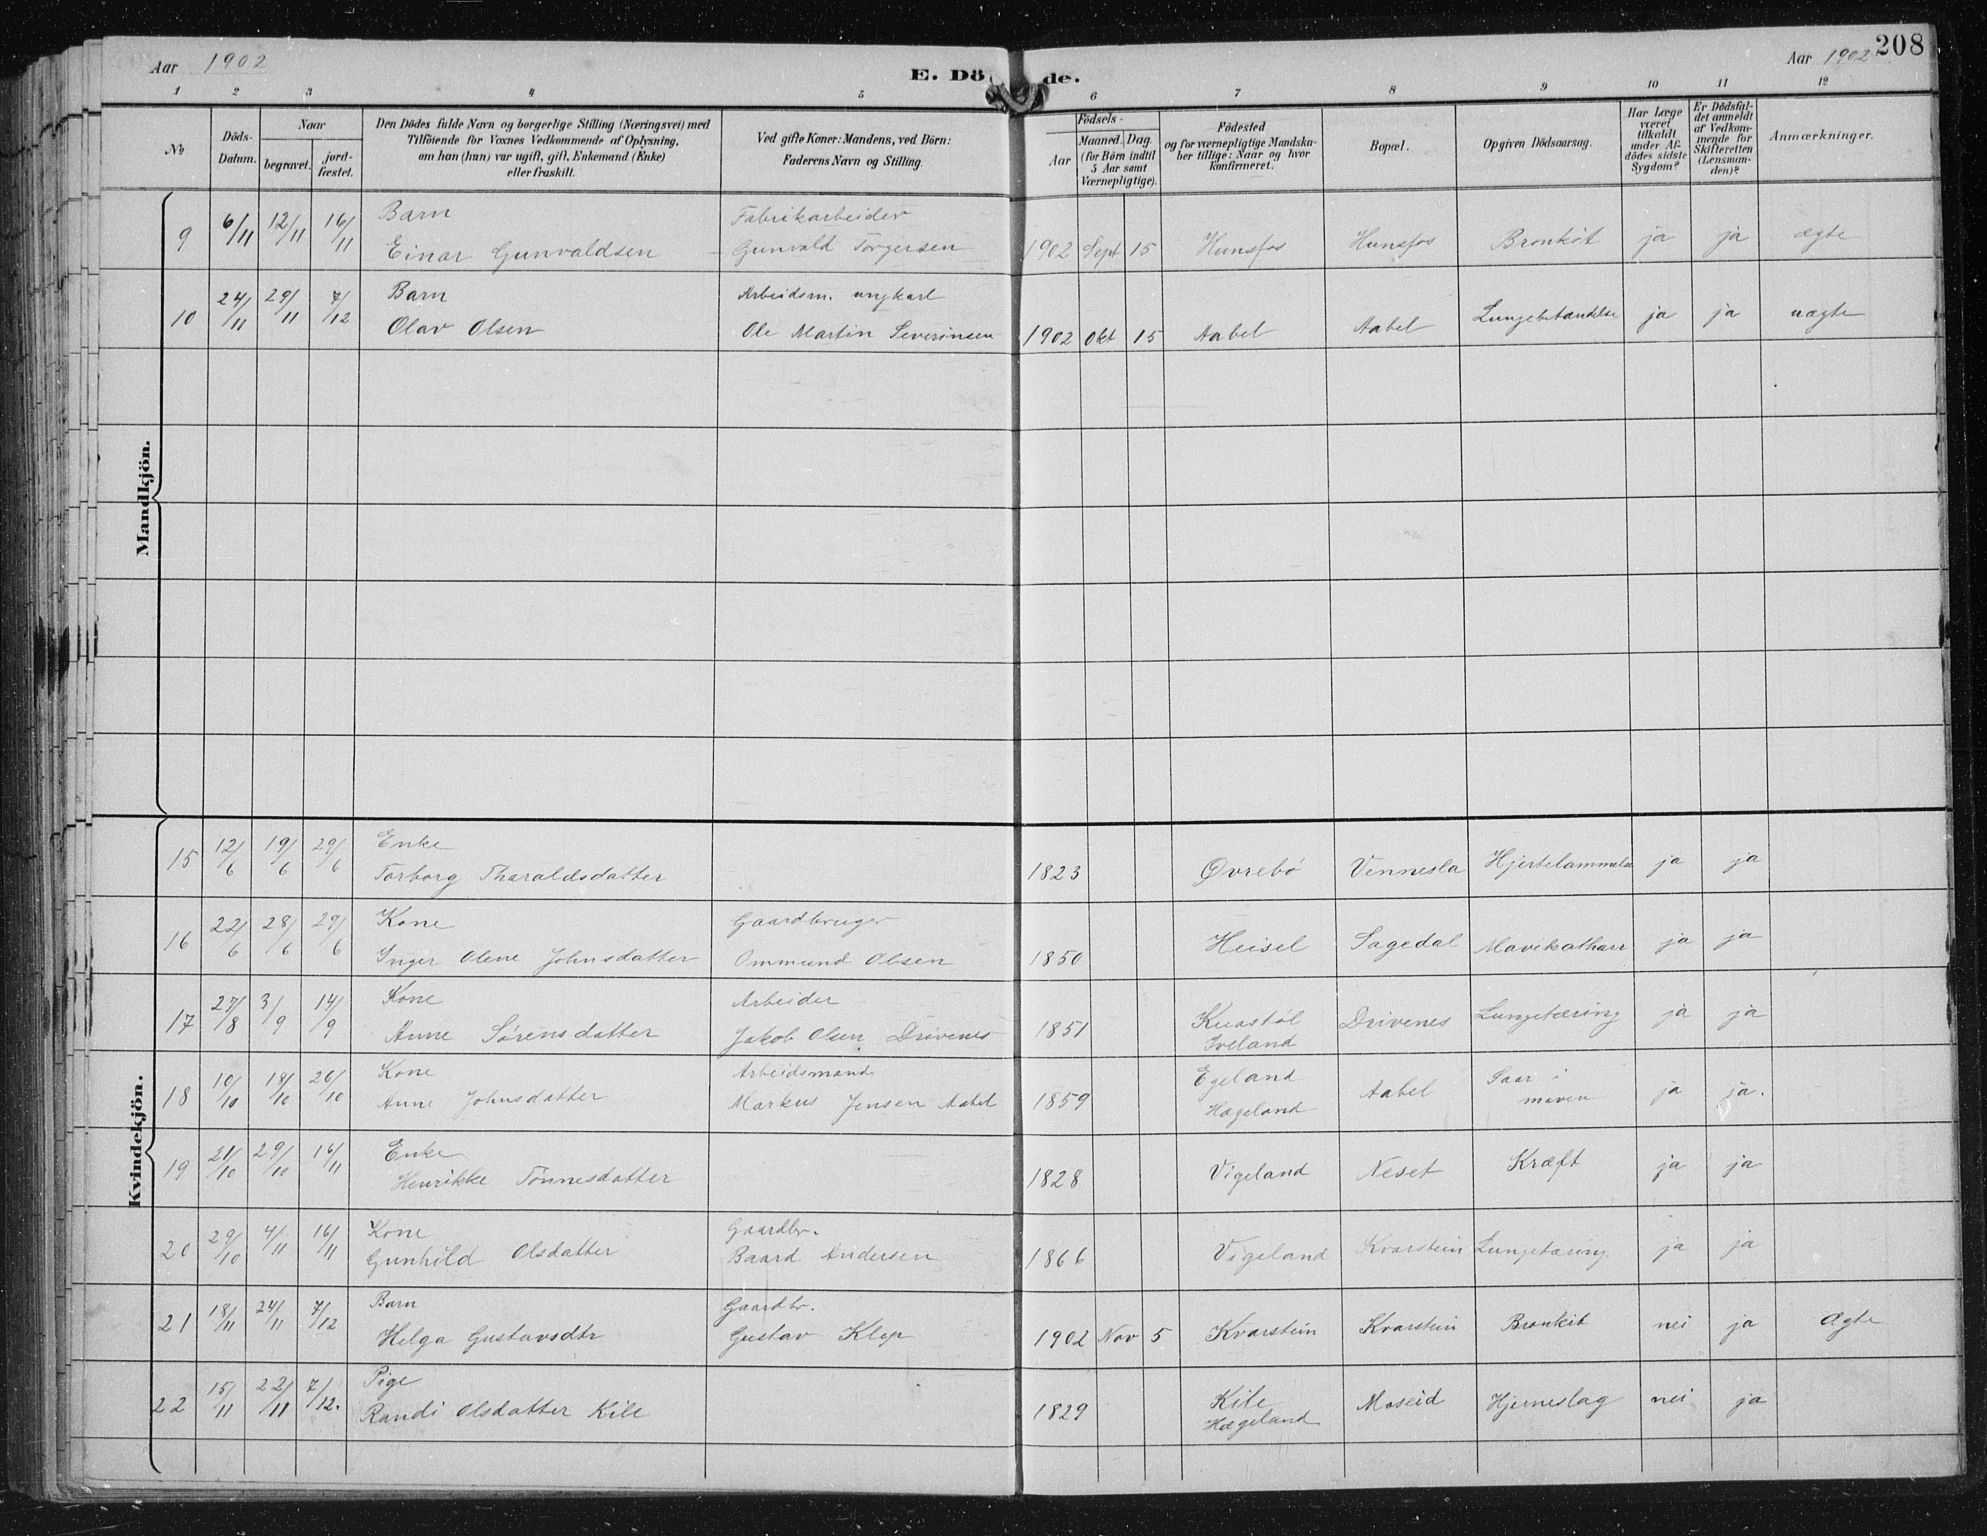 208
Aar 1902
E. Dö de.
Aar 1902
1 2 3 4 5 6 7 8 9 10 11 12
No
Döds-Datum.
Naar
begravet.
jord-fæstet.
Den Dödes fulde Navn og borgerlige Stilling (Næringsvei) med
Tilföiende for Voxnes Vedkommende af Oplysning,
om han (hun) var ugift, gift, Enkemand (Enke)
eller fraskilt.
Ved gifte Koner: Mandens, ved Börn:
Faderens Navn og Stilling.
Födsels-
Aar
Maaned. Dag.
(for Börn indtil
5 Aar samt
Værnepligtige).
Födested
og for værnepligtige Mandska-
ber tillige: Naar og hvor
konfirmeret.
Bopæl.
Opgiven Dödsaarsag.
Har Læge
været
tilkaldt
under Af-
dödes sidste
Sygdom?
Er Dödsfal-
det anmeldt
af Vedkom-
mende for
Skifteretten
(Lensman-
den)?
Anmærkninger.
Mandkjön.
9 6/11 12/11 16/11 Barn Einar Gunvaldsen Fabrikarbeider Gunvald Torgersen 1902 Sept 15 Hunsfos Hunsfos Bronkit ja ja ægte
10 24/11 29/11 7/12 Barn Olav Olsen Arbeidsm. ungkarl Ole Martin Severinsen 1902 Okt 15 Aabel Aabel Lungebetændelse ja ja uægte
Kvindekjön.
15 12/6 19/6 29/6 Enke Torborg Tharaldsdatter 1823 Øvrebö Vennesla Hjertelammelse ja ja
16 22/6 28/6 29/6 Kone Inger Olene Johnsdatter Gaardbruger Ommund Olsen 1850 Heisel Sagedal Mavekatharr ja ja
17 27/8 3/9 14/9 Kone Anne Sørensdatter Arbeider Jakob Olsen Drivenes 1851 Iveland Drivenes Lungetæring ja ja
18 10/10 18/10 26/10 Kone Anne Johnsdatter Arbeidsmand Markus Jensen Aabel 1859 Egeland Hægeland Aabel Saar i maven ja ja.
19 21/10 29/10 16/11 Enke Henrikke Tönnesdatter 1828 Vigeland Neset Kræft ja ja
20 29/10 4/11 16/11 Kone Gunhild Olsdatter Gaardbr. Baard Andersen 1866 Vigeland Kvarstein Lungetæring. ja ja
21 18/11 24/11 7/12 Barn Helga Gustavsdtr Gaardbr. Gustav Klep 1902 Nov 5 Kvarstein Kvarstein Bronkit nei ja Ægte
22 15/11 22/11 7/12. Pige Randi Olsdatter Kile 1829 Kile Hægeland Moseid Hjerneslag nei ja